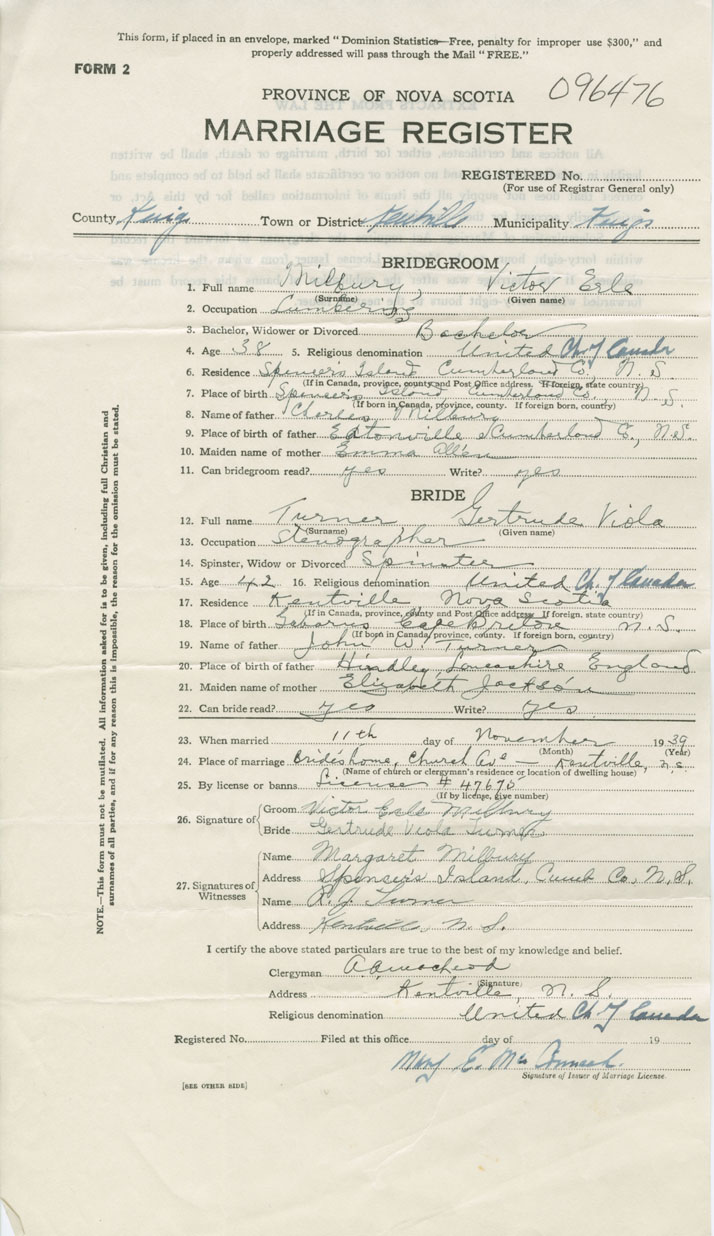 This form, if placed in an envelope, marked "Dominion Statistics—Free, penalty for improper use $300," and
properly addressed will pass through the Mail "FREE."
FORM 2
PROVINCE OF NOVA SCOTIA 096476
MARRIAGE REGISTER
REGISTERED No.
(For use of Registrar General only)
County Kings Town or District Kentville Municipality Kings
BRIDEGROOM
1. Full name Milbury, Victor Erle
(Surname) (Given name)
2. Occupation Lumbering
3. Bachelor, Widower or Divorced Bachelor
4. Age 38 5. Religious denomination United Ch of Canada
6. Residence Spencer's Island Cumberland Co., N. S.
(If in Canada, province, county and Post Office address. If foreign, state country)
7. Place of birth Spencer's Island, Cumberland Co., N. S.
(If born in Canada, province, county. If foreign born, country)
8. Name of father Charles Milbury
9. Place of birth of father Eatonville Cumberland Co., N.S.
10. Maiden name of mother Emma Allen
11. Can bridegroom read? yes Write? yes
BRIDE
12. Full name Turner Gertrude Viola
(Surname) (Given name)
13. Occupation Stenographer
14. Spinster, Widow or Divorced Spinster
15. Age 42 16. Religious denomination United Ch. of Canada
17. Residence Kentville Nova Scotia
(If in Canada, province, county and Post Office address. If foreign, state country)
18. Place of birth Gabarus Cape Breton N. S.
(If born in Canada, province, county. If foreign born, country)
19. Name of father John W. Turner
20. Place of birth of father Hindley, Lancashire England
21. Maiden name of mother Elizabeth Jackson
22. Can bride read? yes Write? yes
23. When married 11th day of November 1939
(Month) (Year)
24. Place of marriage Bride's home, Church Ave — Kentville, N.S.
(Name of church or clergyman's residence or location of dwelling house)
25. By license or banns License # 47675
(If by license, give number)
26. Signature of
Groom Victor Erle Milbury
Bride Gertrude Viola Turner
27. Signatures of Witnesses
Name Margaret Milbury
Address Spencer's Island, Cumb Co. N.S.
Name R. J. Turner
Address Kentville, N. S.
I certify the above stated particulars are true to the best of my knowledge and belief.
Clergyman
(Signature)
Address Kentville, N. S.
Religious denomination United Ch of Canada
Registered No. Filed at this office day of 19
Mary E.
Signature of Issuer of Marriage License.
[SEE OTHER SIDE]
NOTE.—This form must not be mutilated. All information asked for is to be given, including full Christian and
surnames of all parties, and if for any reason this is impossible, the reason for the omission must be stated.